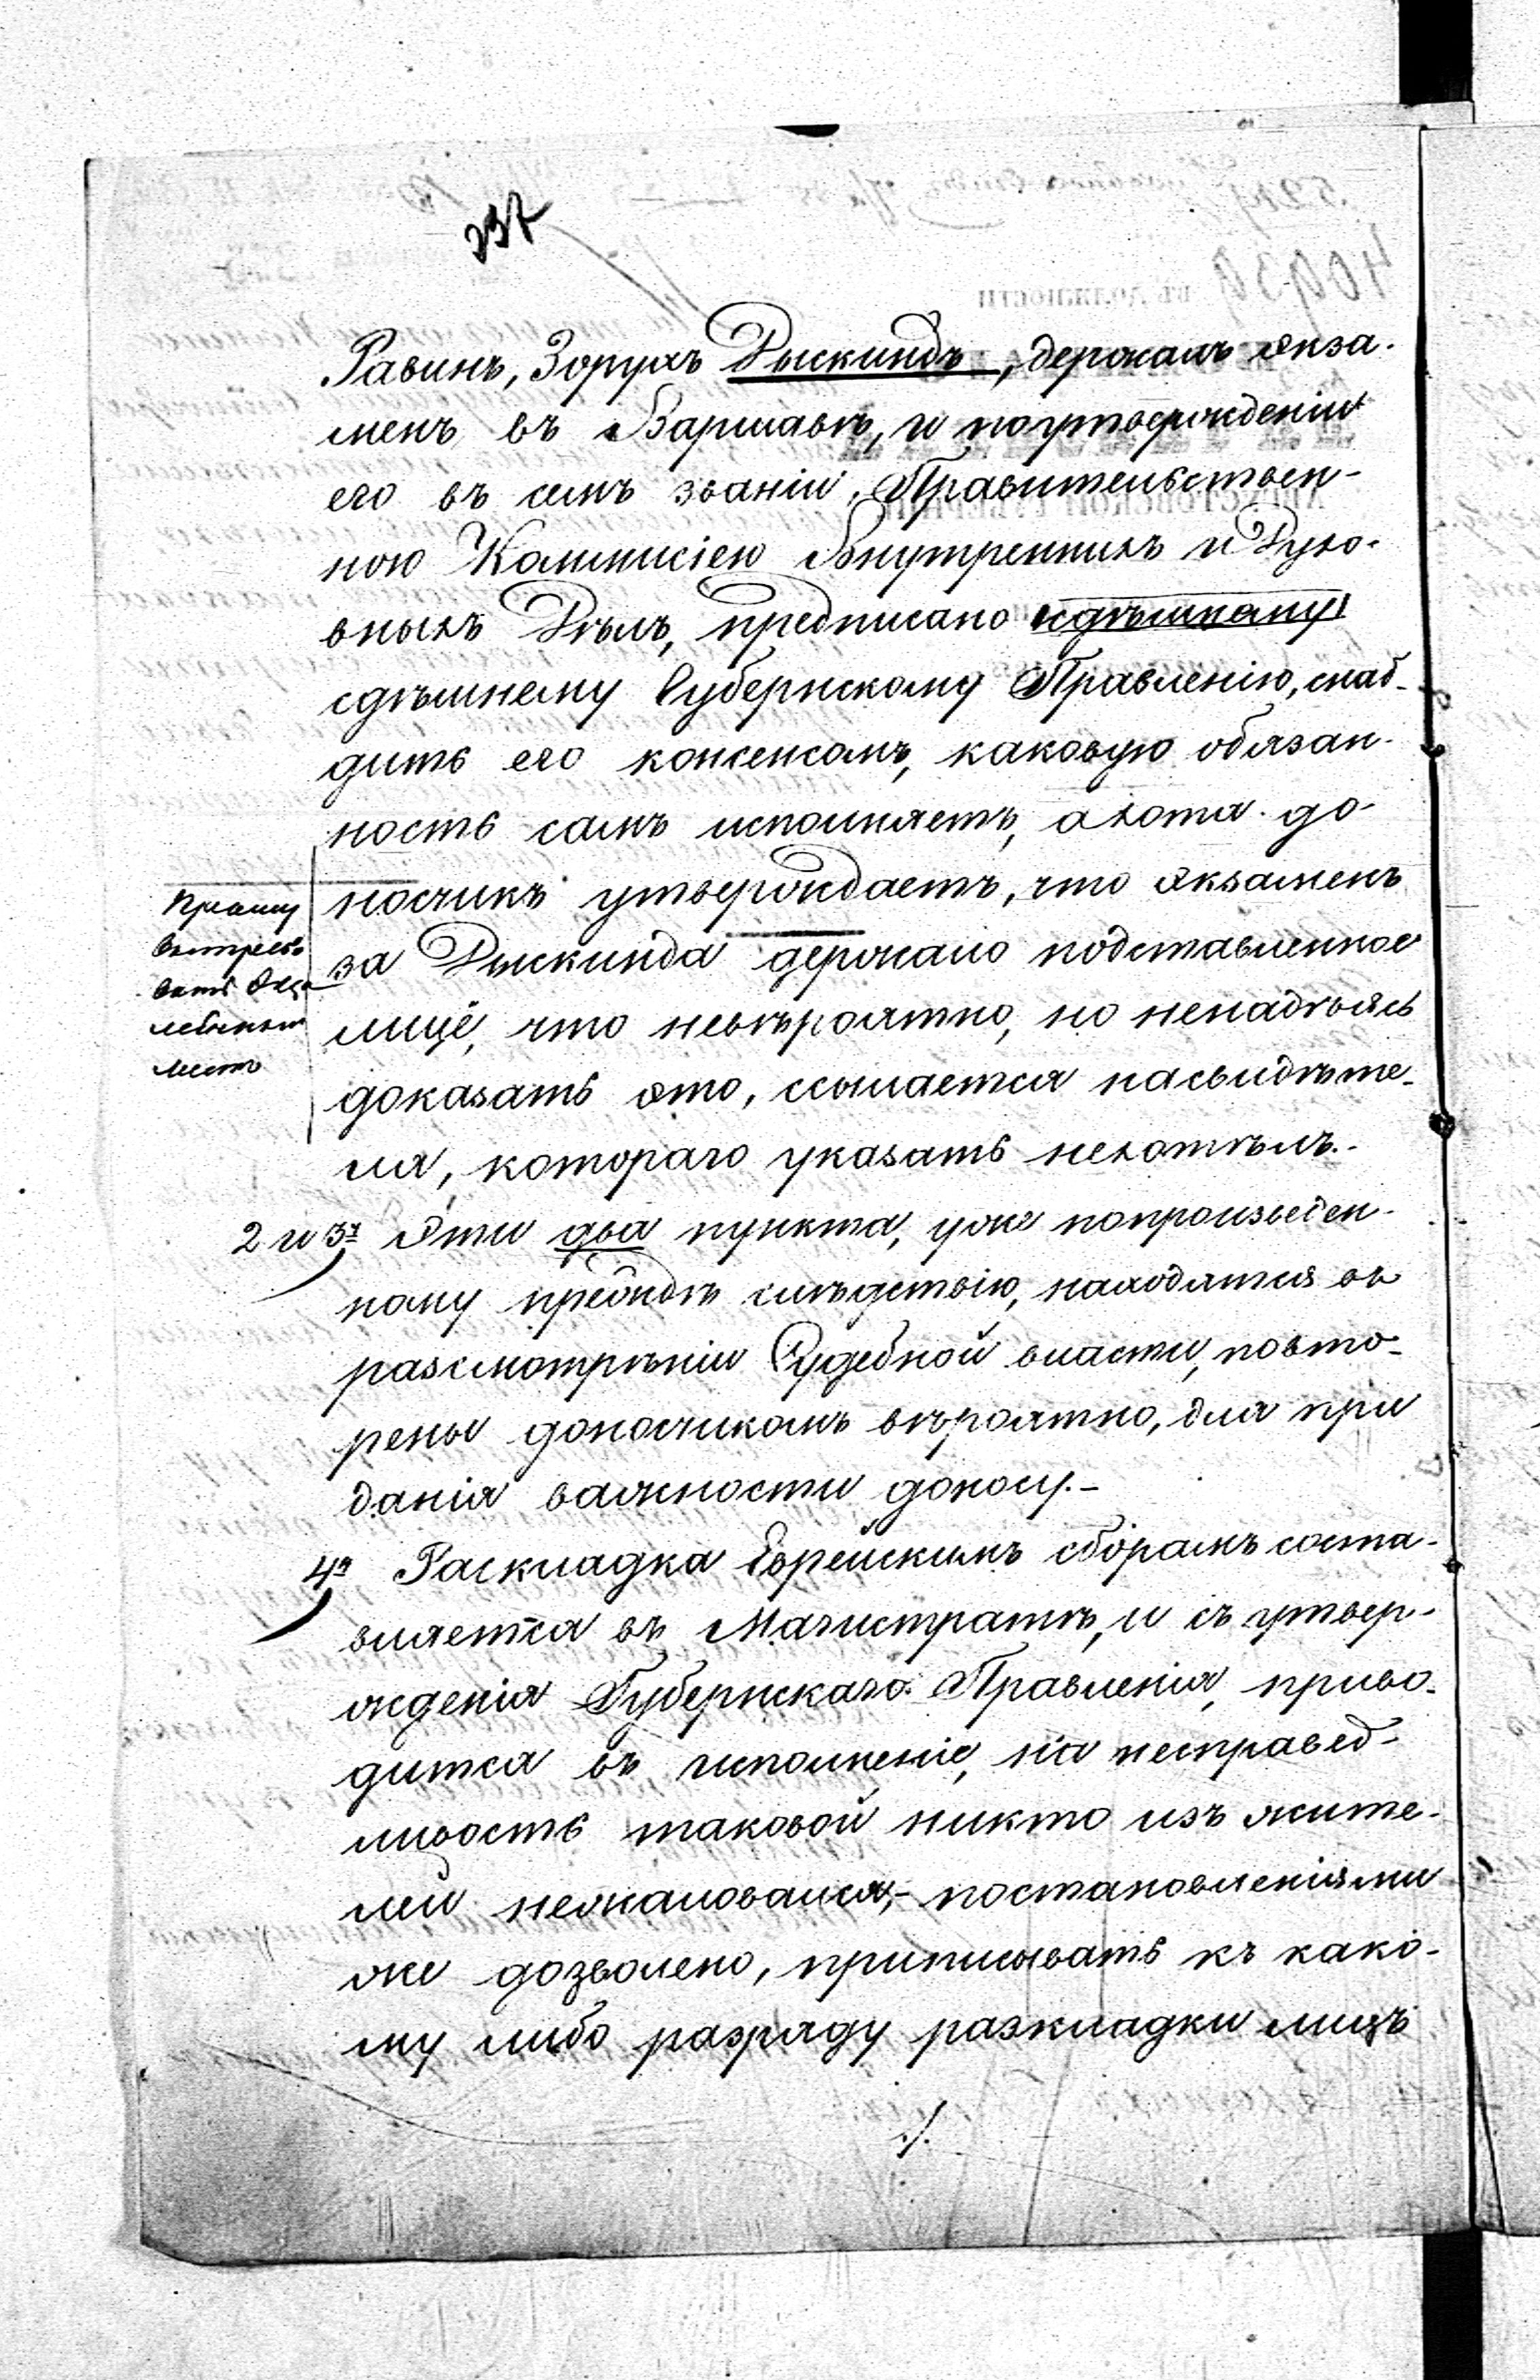 237
Равинъ, Зорухъ Дыскиндъ, держалъ экза-
менъ въ Варшавѣ, и поутвержденіи
его въ семъ званіи, Правительствен-
ною Коммисіею Внутреннихъ и Духо-
вныхъ Дѣлъ, предписано
сдѣшнему Губернскому Правленію, снаб-
дить его консенсомъ, каковую обязан-
ность самъ исполняетъ, а хотя до-
носчикъ утверждаетъ, что экзаменъ
за Дыскинда держало подставленное
лицё, что невѣроятно, но ненадѣясь
доказать это, ссылается насвидѣте-
ля, котораго указать нехотѣлъ.-
Прошу
вытребо
вать
2 и 3я Эти два пункта, уже попроизведен-
ному прежде слѣдствію, находятся въ
разсмотрѣніи Судебной власти, повто-
рены доносчикомъ вѣроятно, для при
данія важности доносу.-
4я Раскладка Еврейскимъ сборамъ соста-
вляется въ Магистратѣ, и съ утвер-
жденія Губернскаго Правленія, приво-
дится въ исполненіе, на несправед-
ливость таковой никто изъ жите-
лей нежаловался,- постановленіями
же дозволено, приписывать къ како-
му либо разряду разкладки лицъ
./.